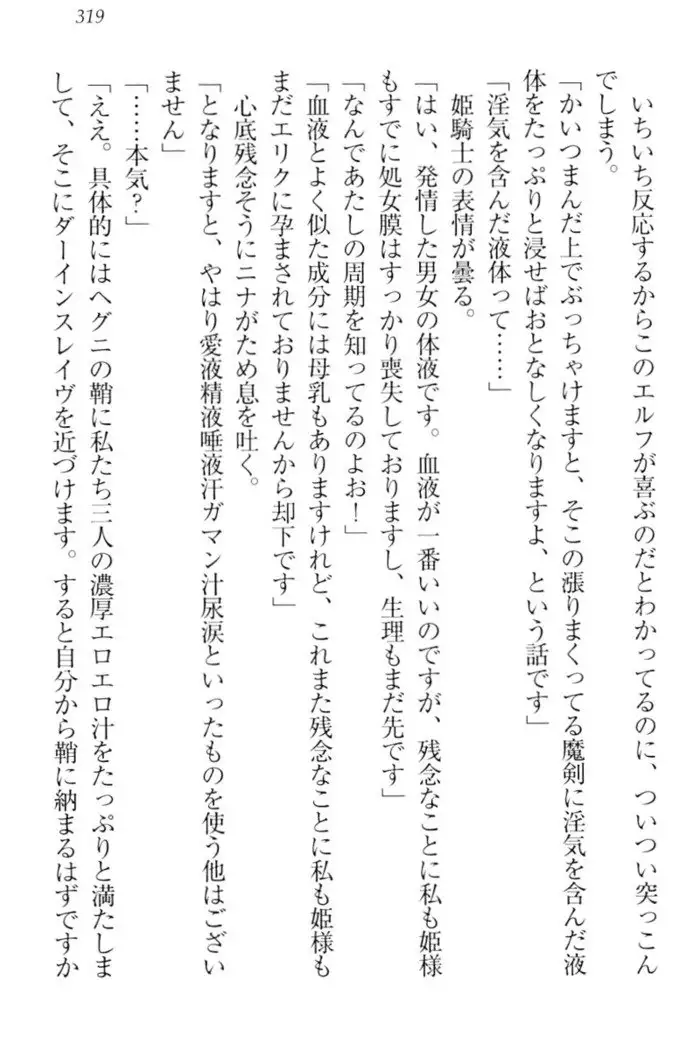 319
いちいち反応するからこのエルフが喜ぶのだとわかってるのに、ついつい突っこん
でしまう。
「かいつまんだ上でぶっちゃけますと、そこの漲りまくってる魔剣に淫気を含んだ液
体をたっぷりと浸せばおとなしくなりますよ、という話です」
「淫気を含んだ液体って……」
姫騎士の表情が曇る。
「はい、発情した男女の体液です。血液が一番いいのですが、残念なことに私も姫様
もすでに処女膜はすっかり喪失しておりますし、生理もまだ先です」
「なんであたしの周期を知ってるのよお！」
「血液とよく似た成分には母乳もありますけれど、これまた残念なことに私も姫様も
まだエリクに孕まされておりませんから却下です」
心底残念そうにニナがため息を吐く。
「となりますと、やはり愛液精液唾液汗ガマン汁尿涙といったものを使う他はござい
ません」
「……本気？」
「ええ。具体的にはヘグニの鞘に私たち三人の濃厚エロエロ汁をたっぷりと満たしま
して、そこにダーインスレイヴを近づけます。すると自分から鞘に納まるはずですか